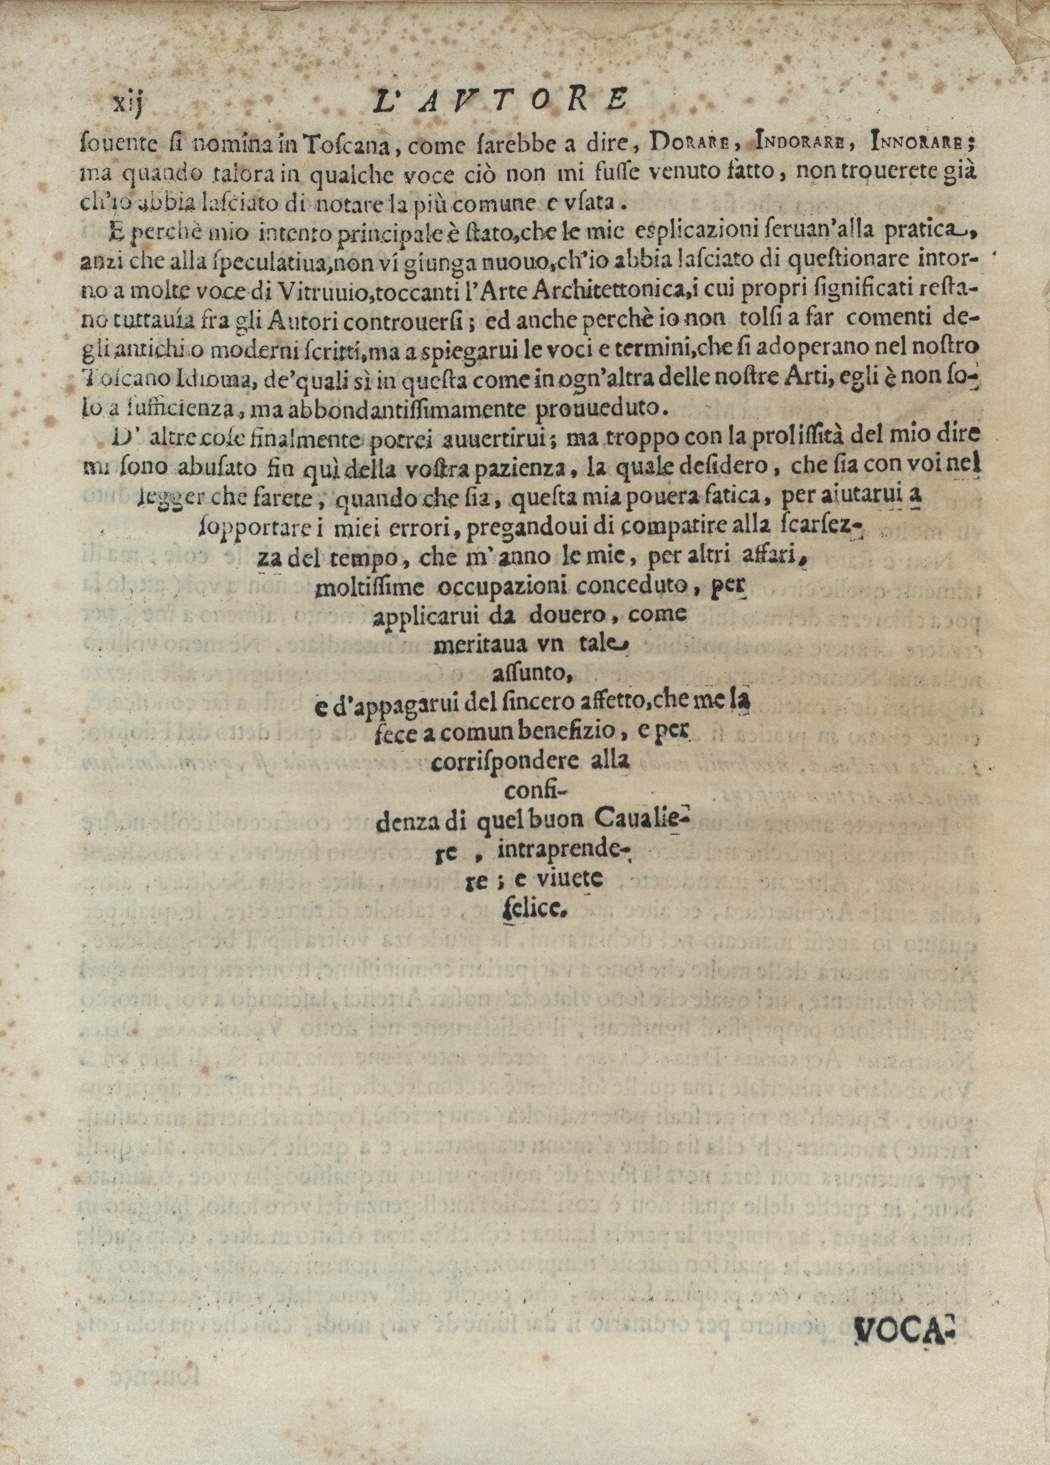 xij L' A V T O R E
ſouente ſi nomina in Toſcana, come ſarebbe a dire, DORARE, INDORARE, INNORARE;
ma quando talora in qualche voce ciò non mi fuſſe venuto fatto, non trouerete già
ch'io abbia laſciato di notare la più comune e vſata.
E perchè mio intento principale è ſtato, che le mie eſplicazioni ſeruan'alla pratica,
anzi che alla ſpeculatiua, non vi giunga nuouo, ch'io abbia laſciato di queſtionare intor-
no a molte voce di Vitruuio, toccanti l'Arte Architettonica, i cui propri ſignificati reſta-
no tuttauia fra gli Autori controuerſi; ed anche perchè io non tolſi a far comenti de-
gli antichi o moderni ſcritti, ma a ſpiegarui le voci e termini, che ſi adoperano nel noſtro
Toſcano Idioma, de'quali sì in queſta come in ogn'altra delle noſtre Arti, egli è non ſo-
lo a ſufficienza, ma abbondantiſſimamente prouueduto.
D' altre coſe finalmente potrei auuertirui; ma troppo con la proliſſità del mio dire
mi ſono abuſato fin quì della voſtra pazienza, la quale deſidero, che ſia con voi nel
legger che farete, quando che ſia, queſta mia pouera fatica, per aiutarui a
ſopportare i miei errori, pregandoui di compatire alla ſcarſez-
za del tempo, che m' anno le mie, per altri affari,
moltiſſime occupazioni conceduto, per
applicarui da douero, come
meritaua vn tale
aſſunto,
e d'appagarui del ſincero affetto, che me la
fece a comun benefizio, e per
corriſpondere alla
confi-
denza di quel buon Caualie-
re , intraprende-
re ; e viuete
felice.
VOCA-